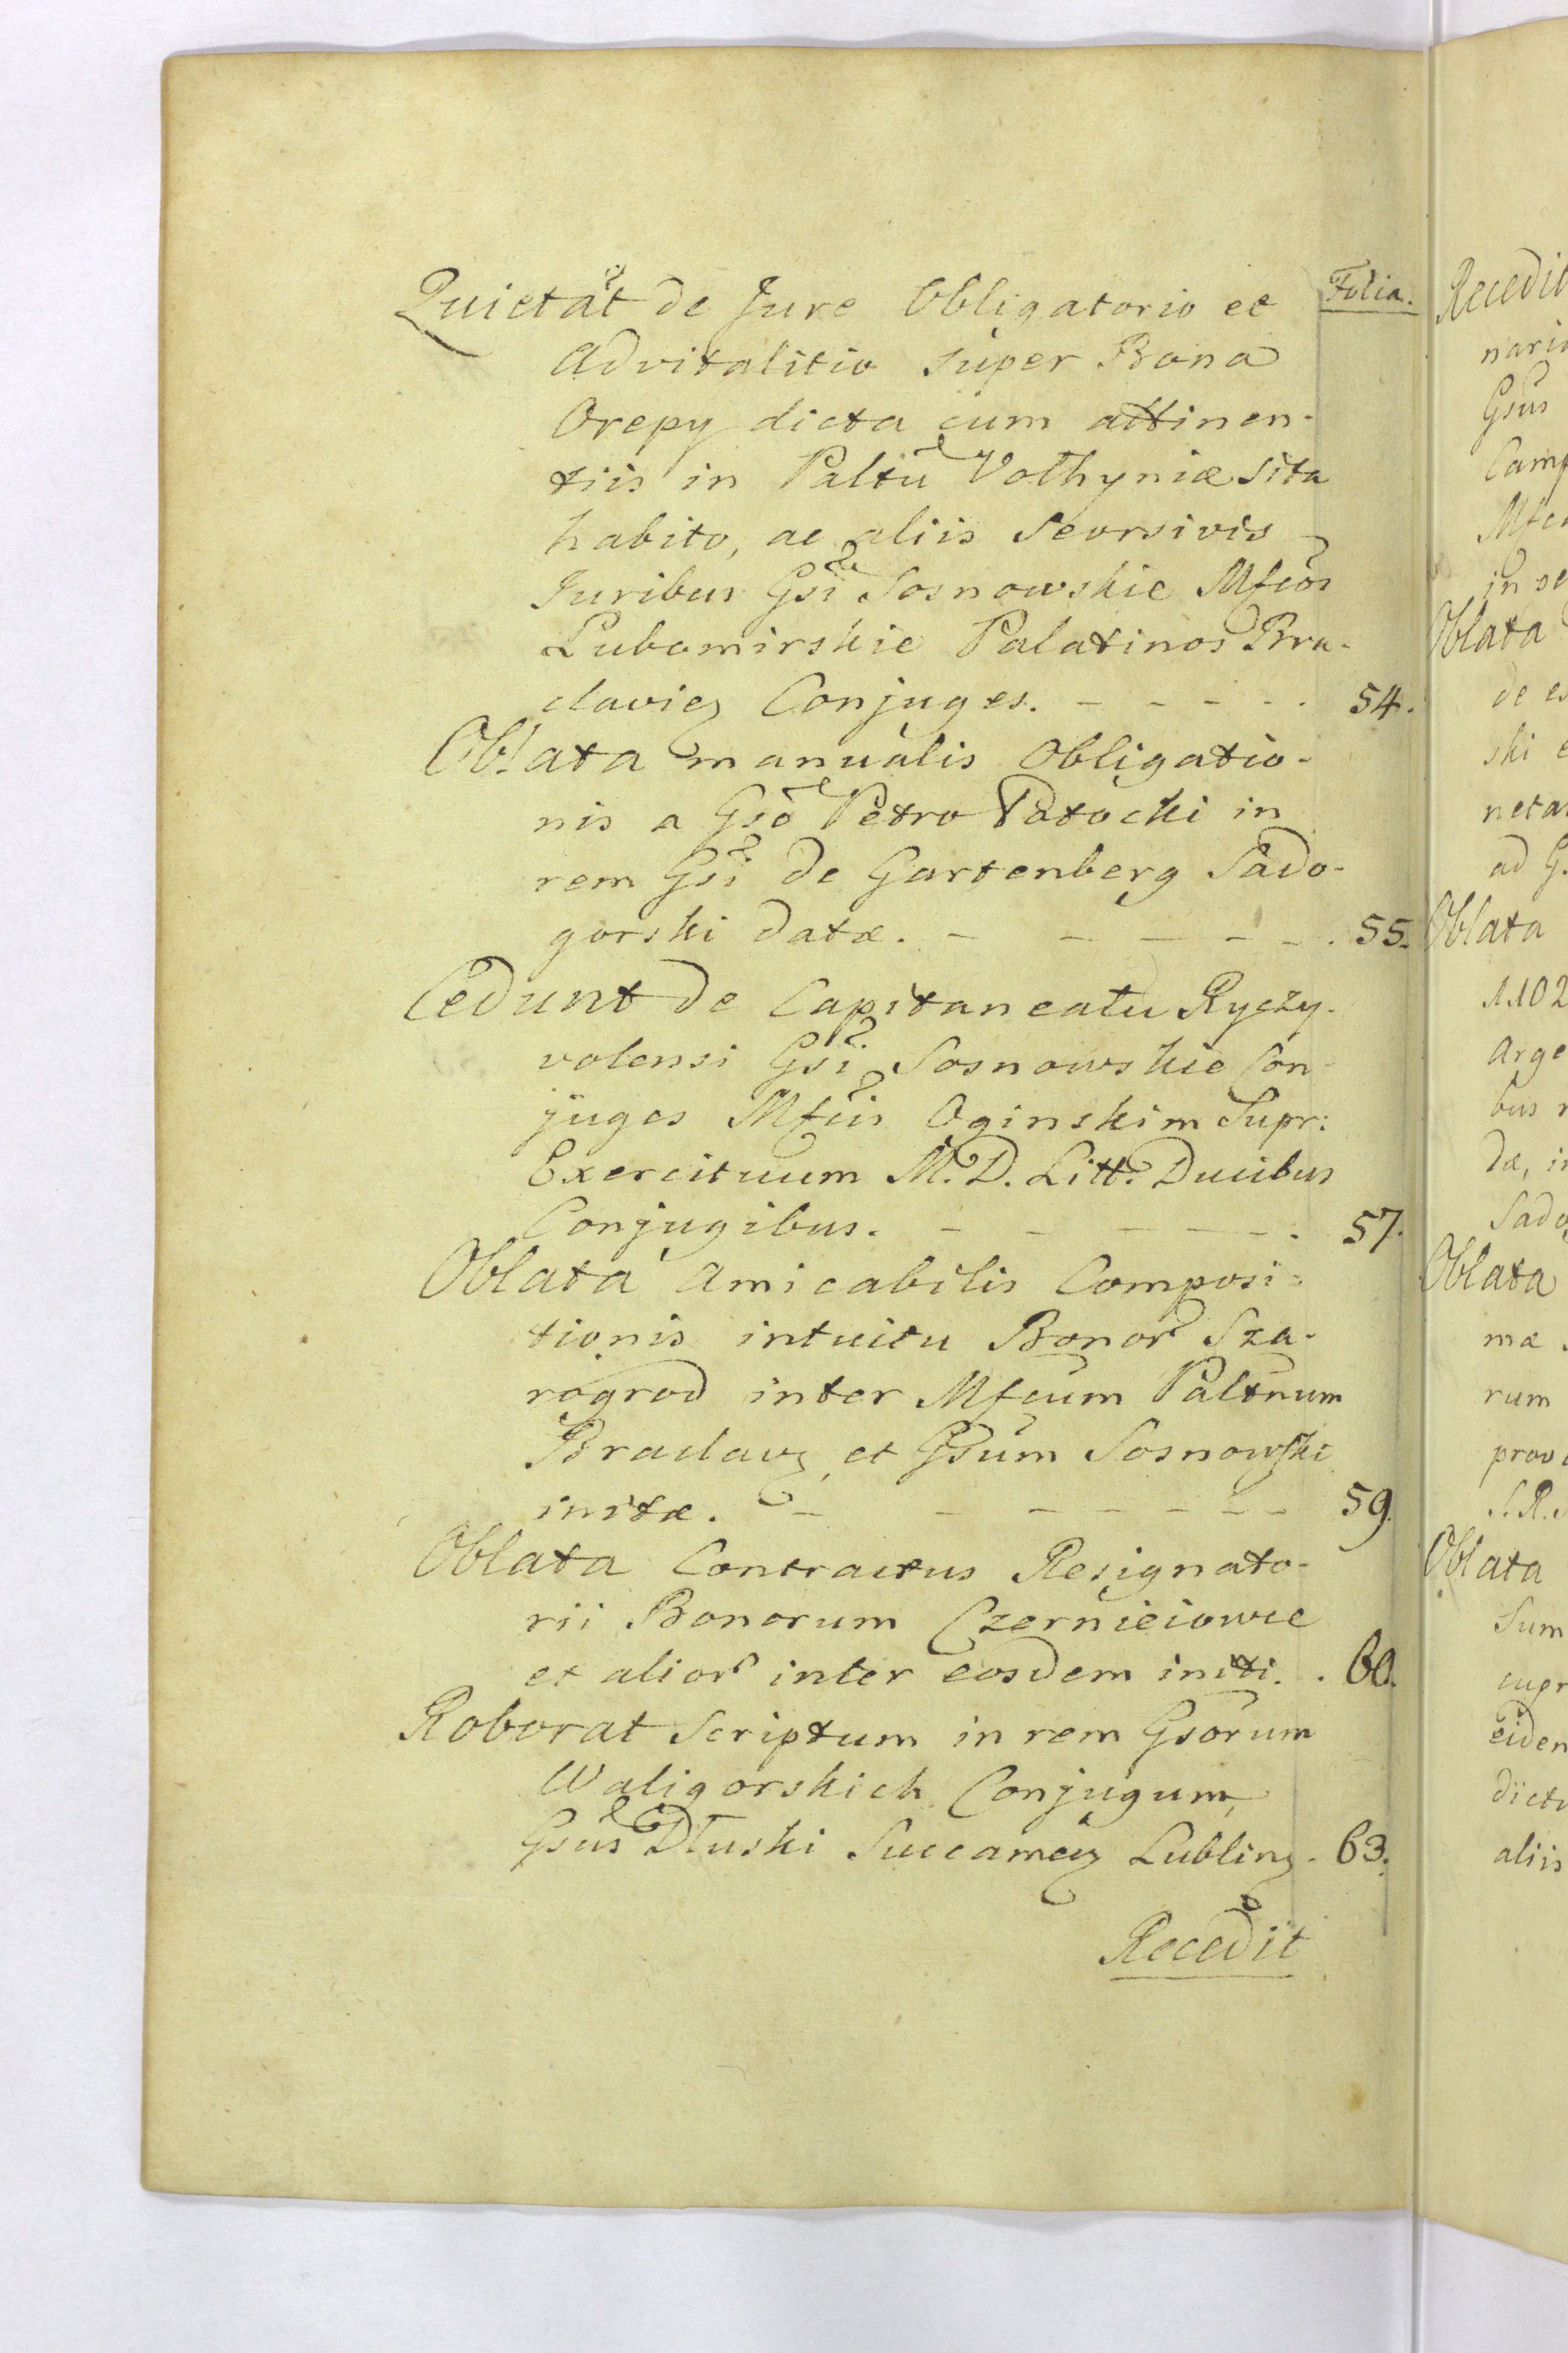 Folia.
Quietat de Jure Obligatorio et
Advitalitio super Bona
Orepy dicta cum attinen-
tiis in Paltu Volhyniæ sita
habito, ac aliis Seorsivis
Juribus Gsi Sosnowskie Mfcos
Lubomirskie Palatinos Bra-
claviez Conjuges. - - - - - 54.
Oblata manualis Obligatio-
nis a Gso Petro Potocki in
rem Gsi de Gartenberg Sado-
gorski datæ. - - - - - . 55.
Cedunt de Capitaneatu Ryczy-
volensi Gsi Sosnowskie Con
juges Mfcis Oginskim Supr:
Exercituum M. D. Litt: Ducibus
Conjugibus. - - - - - . 57.
Oblata Amicabilis Composi-
tionis intuitu Bonor Sza-
rogrod inter Mfcum Paltnum
Braclavz et Gsum Sosnowski
initæ. - - - - - - 59.
Oblata Contractus Resignato-
rii Bonorum Czernieiowce
et alior inter eosdem initi. . 60.
Roborat Scriptum in rem Gsorum
Waligorskich Conjugum,
Gsus Dluski Succamez Lublinz. 63.
Recedit
Recedit
Gsus
Oblata
de
ski
ad
Oblata
1102
Oblata
mæ
rum
S. R.
Oblata
aliis